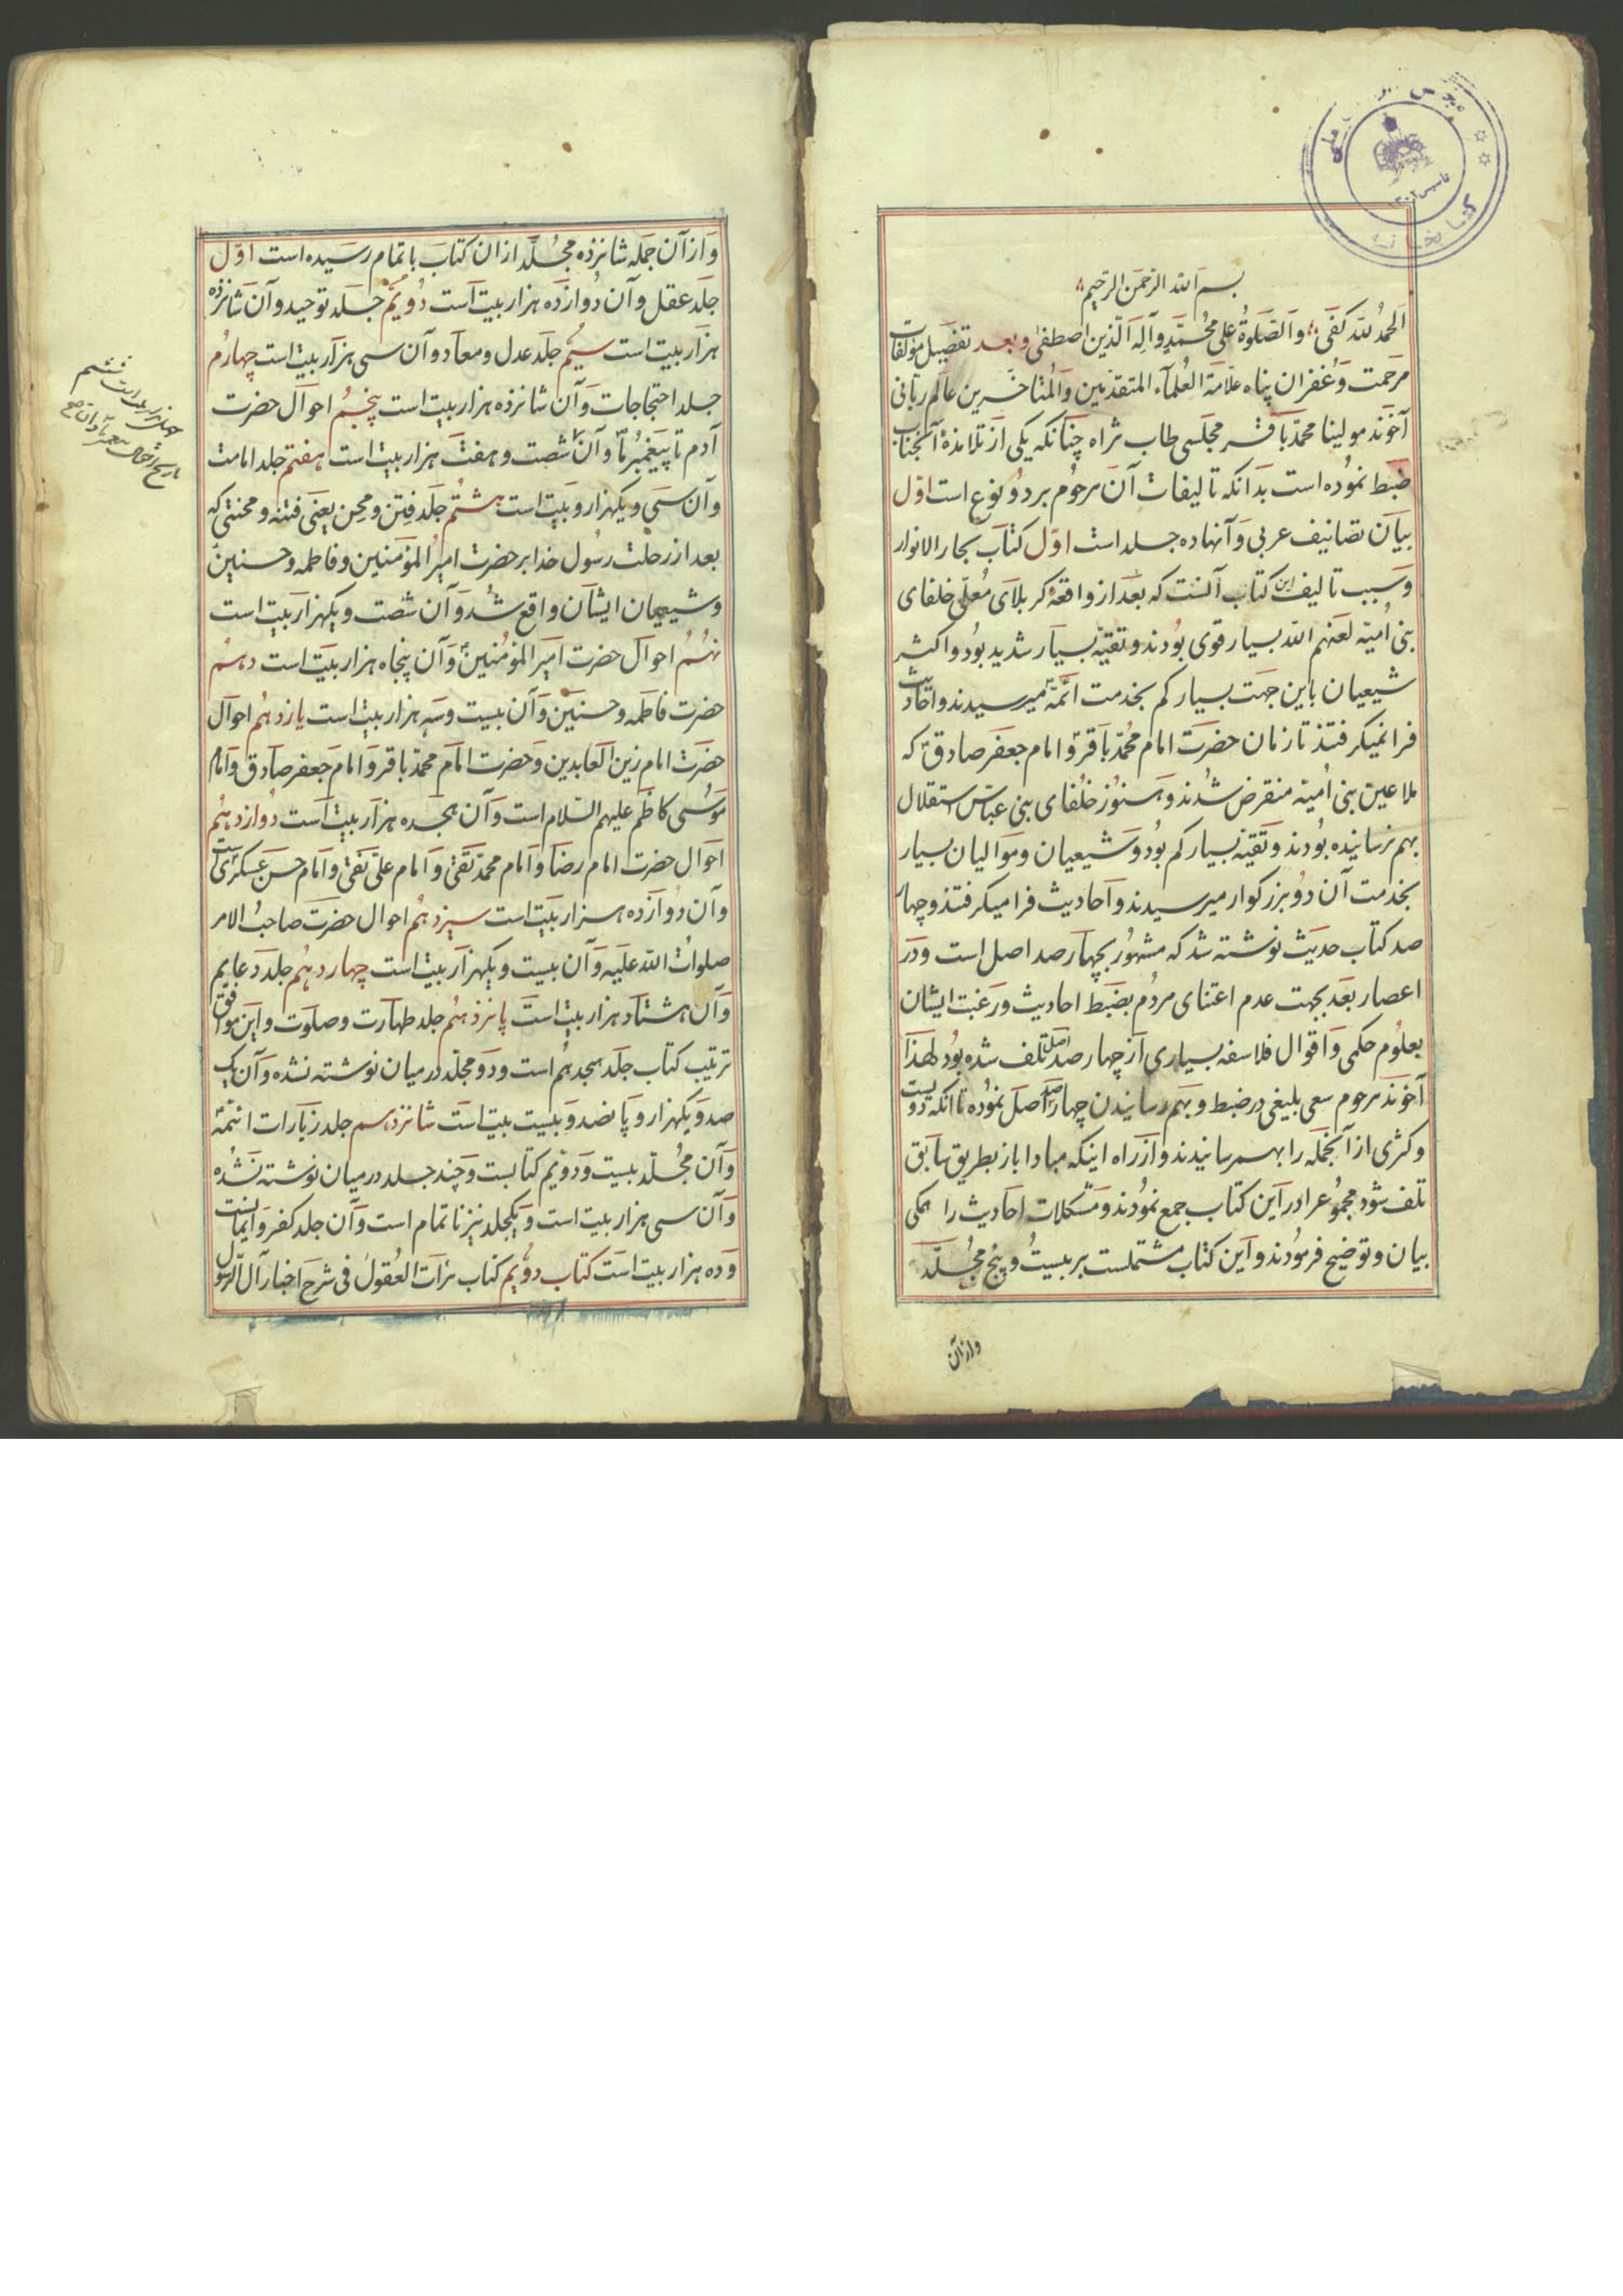 بسم الله الرحمن الرحیم
الحمد لله کفی والصلوة علی محمد وآله الذین اصطفی وبعد تفصیل مؤلفات
مرحمت وغفران پناه علامة العلمآء المتقدمین والمتاخرین عالم ربانی
آخوند مولینا محمد باقر مجلسی طاب ثراه چنانکه یکی از تلامذهٔ آنجناب
ضبط نموده است بدانکه تالیفات آن مرحوم بر دو نوع است اول
بیان تصانیف عربی وآنها ده جلد است اول کتاب بحار الانوار
وسبب تالیف این کتاب آنست که بعد از واقعهٔ کربلای معلی خلفای
بنی امیه لعنهم الله بسیار قوی بودند وتقیه بسیار شدید بود واکثر
شیعیان باین جهت بسیار کم بخدمت ائمه میرسیدند واحادیث
فرا نمیکرفتند تا زمان حضرت امام محمد باقر وامام جعفر صادق که
ملاعین بنی امیه منقرض شدند وهنوز خلفای بنی عباس استقلال
بهم نرسانیده بودند وتقیه بسیار کم بود وشیعیان وموالیان بسیار
بخدمت آن دو بزرکوار میرسیدند واحادیث فرا میکرفتند وچهار
صد کتاب حدیث نوشته شد که مشهور بچهار صد اصل است ودر
اعصار بعد بجهت عدم اعتنای مردم بضبط احادیث ورغبت ایشان
بعلوم حکمی واقوال فلاسفه بسیاری از چهار صد اصل تلف شده بود لهذا
آخوند مرحوم سعی بلیغی در ضبط وبهم رسانیدن چهار صد اصل نموده تا آنکه دویست
وکثری از آنجمله را بهم رسانیدند واز راه اینکه مبادا باز بطریق سابق
تلف شود مجموعرا در این کتاب جمع نمودند ومشکلات احادیث را همکی
بیان وتوضیح فرمودند واین کتاب مشتملست بر بیست وپنج مجلد
وازآن
وازآن جمله شانزده مجلد ازان کتاب باتمام رسیده است اول
جلد عقل وآن دوازده هزار بیت است دویم جلد توحید وآن شانزده
هزار بیت است سیم جلد عدل ومعاد وآن سی هزار بیت است چهارم
جلد احتجاجات وآن شانزده هزار بیت است پنجم احوال حضرت
آدم تا پیغمبر ما وآن شصت وهفت هزار بیت است هفتم جلد امامت
وآن سی ویکهزار بیت است هشتم جلد فتن ومحن یعنی فتنه ومحنتی که
بعد از رحلت رسول خدا بر حضرت امیر المؤمنین وفاطمه وحسنین
وشیعیان ایشان واقع شد وآن شصت ویکهزار بیت است
نهم احوال حضرت امیر المؤمنین وآن پنجاه هزار بیت است دهم
حضرت فاطمه وحسنین وآن بیست وسه هزار بیت است یازدهم احوال
حضرت امام زین العابدین وحضرت امام محمد باقر وامام جعفر صادق وامام
موسی کاظم علیهم السلام است وآن هجده هزار بیت است دوازدهم
احوال حضرت امام رضا وامام محمد تقی وامام علی نقی وامام حسن عسکری است
وآن دوازده هزار بیت است سیزدهم احوال حضرت صاحب الامر
صلوات الله علیه وآن بیست ویکهزار بیت است چهاردهم جلد دعایم
وآن هشتاد هزار بیت است پانزدهم جلد طهارت وصلوت واین موافق
ترتیب کتاب جلد هجدهم است ودو مجلد در میان نوشته نشده وآن یک
صد ویکهزار وپانصد وبیست بیت است شانزدهم جلد زیارات ائمه
وآن مجلد بیست ودویم کتابست وچند جلد در میان نوشته نشده
وآن سی هزار بیت است ویکجلد نیز ناتمام است وآن جلد کفر وایمانست
وده هزار بیت است کتاب دویم کتاب مرآت العقول فی شرح اخبار آل الرسول